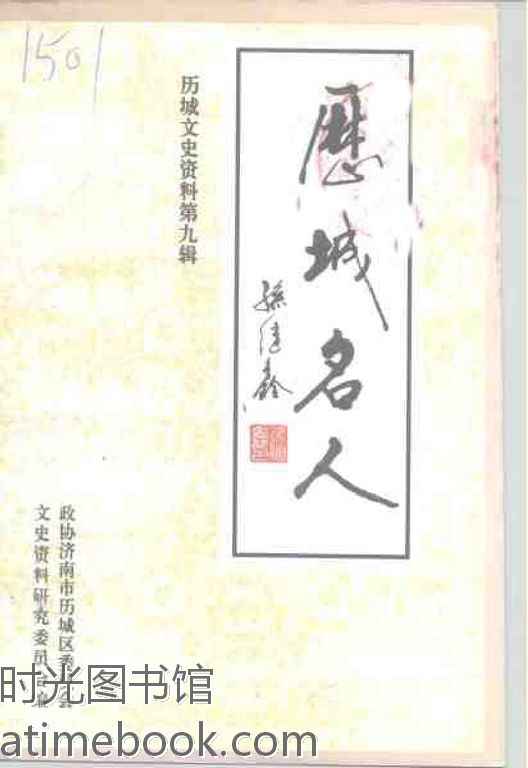 1501
歷城名人
历城文史资料第九辑
政协济南市历城区委员会
文史资料研究委员会
时光图书馆
atimebook.com